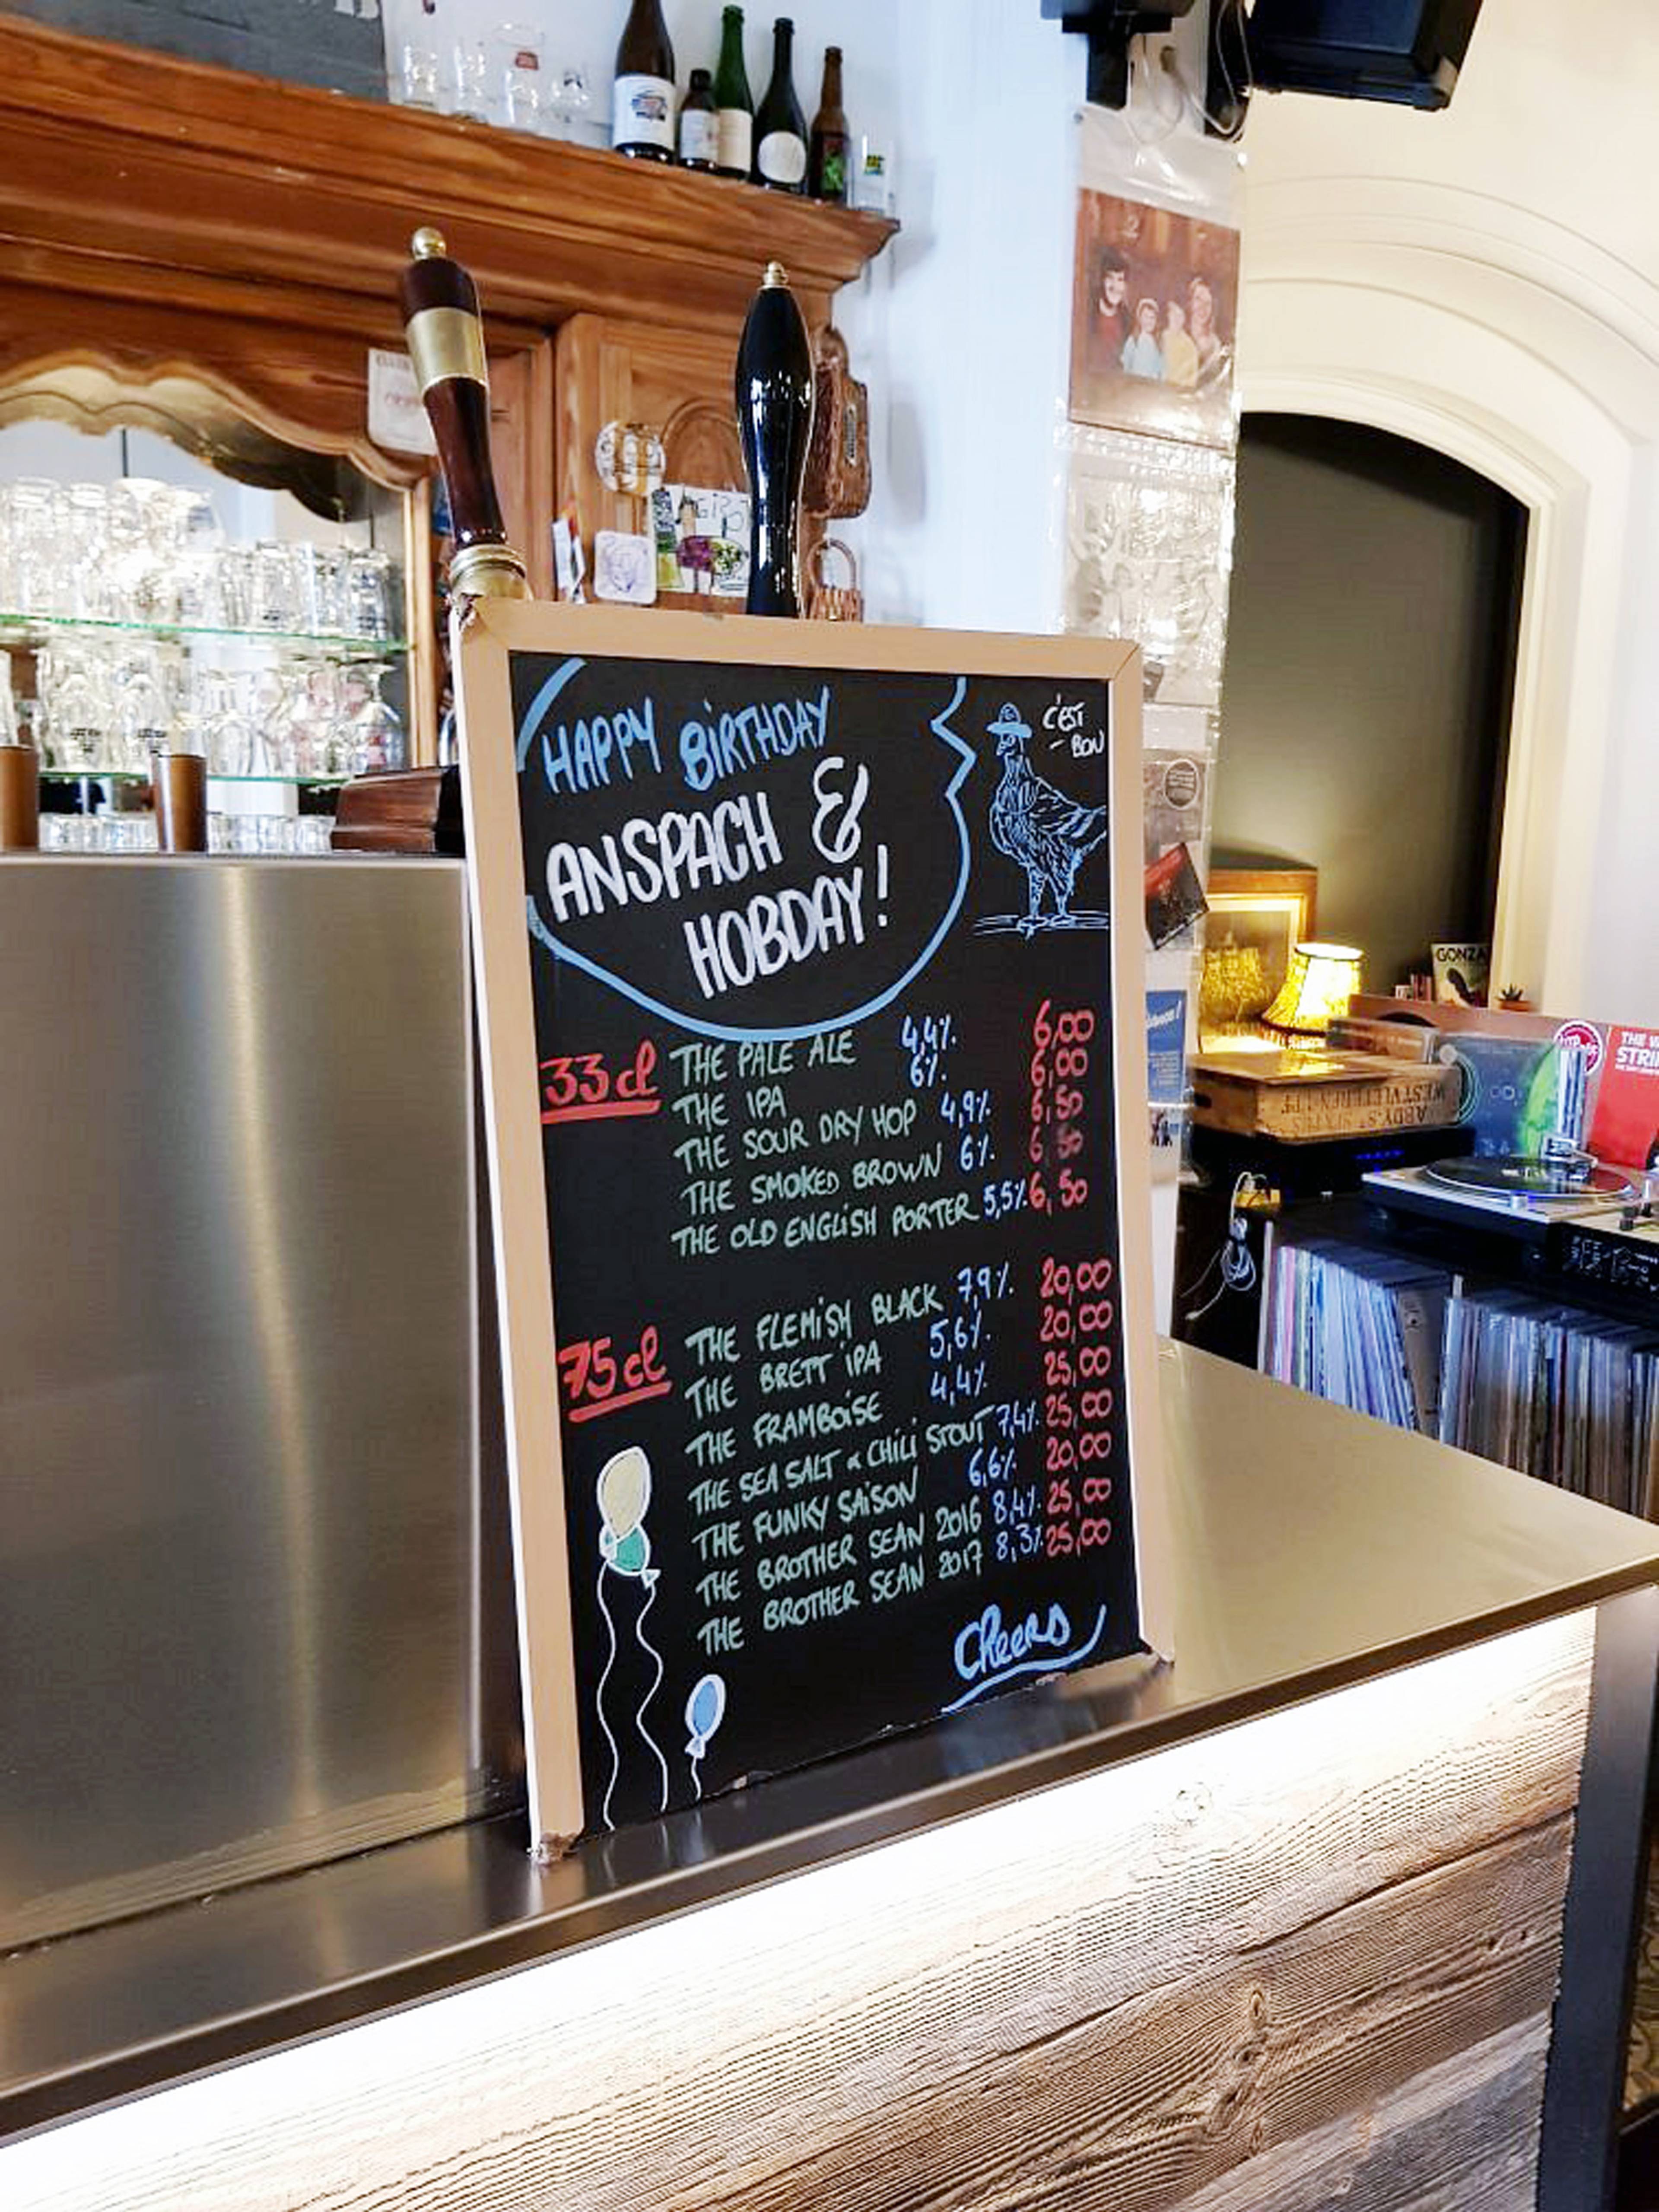 HAPPY BIRTHDAY
ANSPACH &
HOBDAY!
C'EST
BON
33cl
THE PALE ALE 4,4% 6,00
THE IPA 6% 6,00
THE SOUR DRY HOP 4,9% 6,50
THE SMOKED BROWN 6% 6,50
THE OLD ENGLISH PORTER 5,5% 6,50
75cl
THE FLEMISH BLACK 7,9% 20,00
THE BRETT IPA 5,6% 20,00
THE FRAMBOISE 4,4% 25,00
THE SEA SALT & CHILI STOUT 7,4% 25,00
THE FUNKY SAISON 6,6% 20,00
THE BROTHER SEAN 2016 8,4% 25,00
THE BROTHER SEAN 2017 8,3% 25,00
Cheers
GONZA
THE
STRI
ABDY ST SIXTUS
WESTVLETEREN